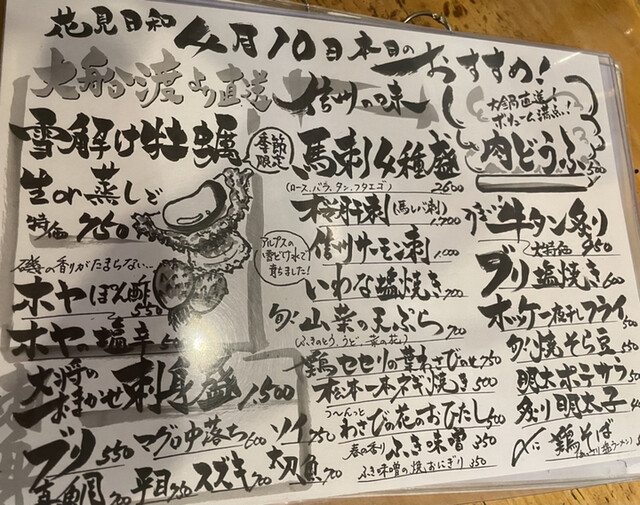 花見日和 4月10日本日のおすすめ!
大船渡より直送
雪解け牡蠣
季節限定
生or蒸しで
特価 750
磯の香りがたまらない…
ホヤぽん酢 550
ホヤの塩辛
大将のおまかせ刺身盛 1,500
ブリ 550 マグロ中落ち 600 ソイ 750
真鯛 700 平目 750 スズキ 700 太刀魚 700
信州の味
馬刺4種盛 2600
(ロース、バラ、タン、フタエゴ)
桜肝刺(馬レバ刺) 1,700
アルプスの雪どけ水で育ちました!
信州サーモン刺 1,000
いわな塩焼き 700
旬!山菜の天ぷら 700
(ふきのとう、うど、菜の花)
鶏セセリの葉わさびのせ 750
松本一本ネギ焼き 500
う〜んっと わさびの花のおひたし 500
春の香り ふき味噌 350
ふき味噌の焼おにぎり 350
大鍋直送!
ボリューム満点!
肉どうふ 500
うまい 牛タン炙り
大特価 950
ブリ塩焼き 600
ホッケ一夜干しフライ
旬!焼そら豆 550
明太ポテサラ 500
炙り明太子
〆に 鶏そば